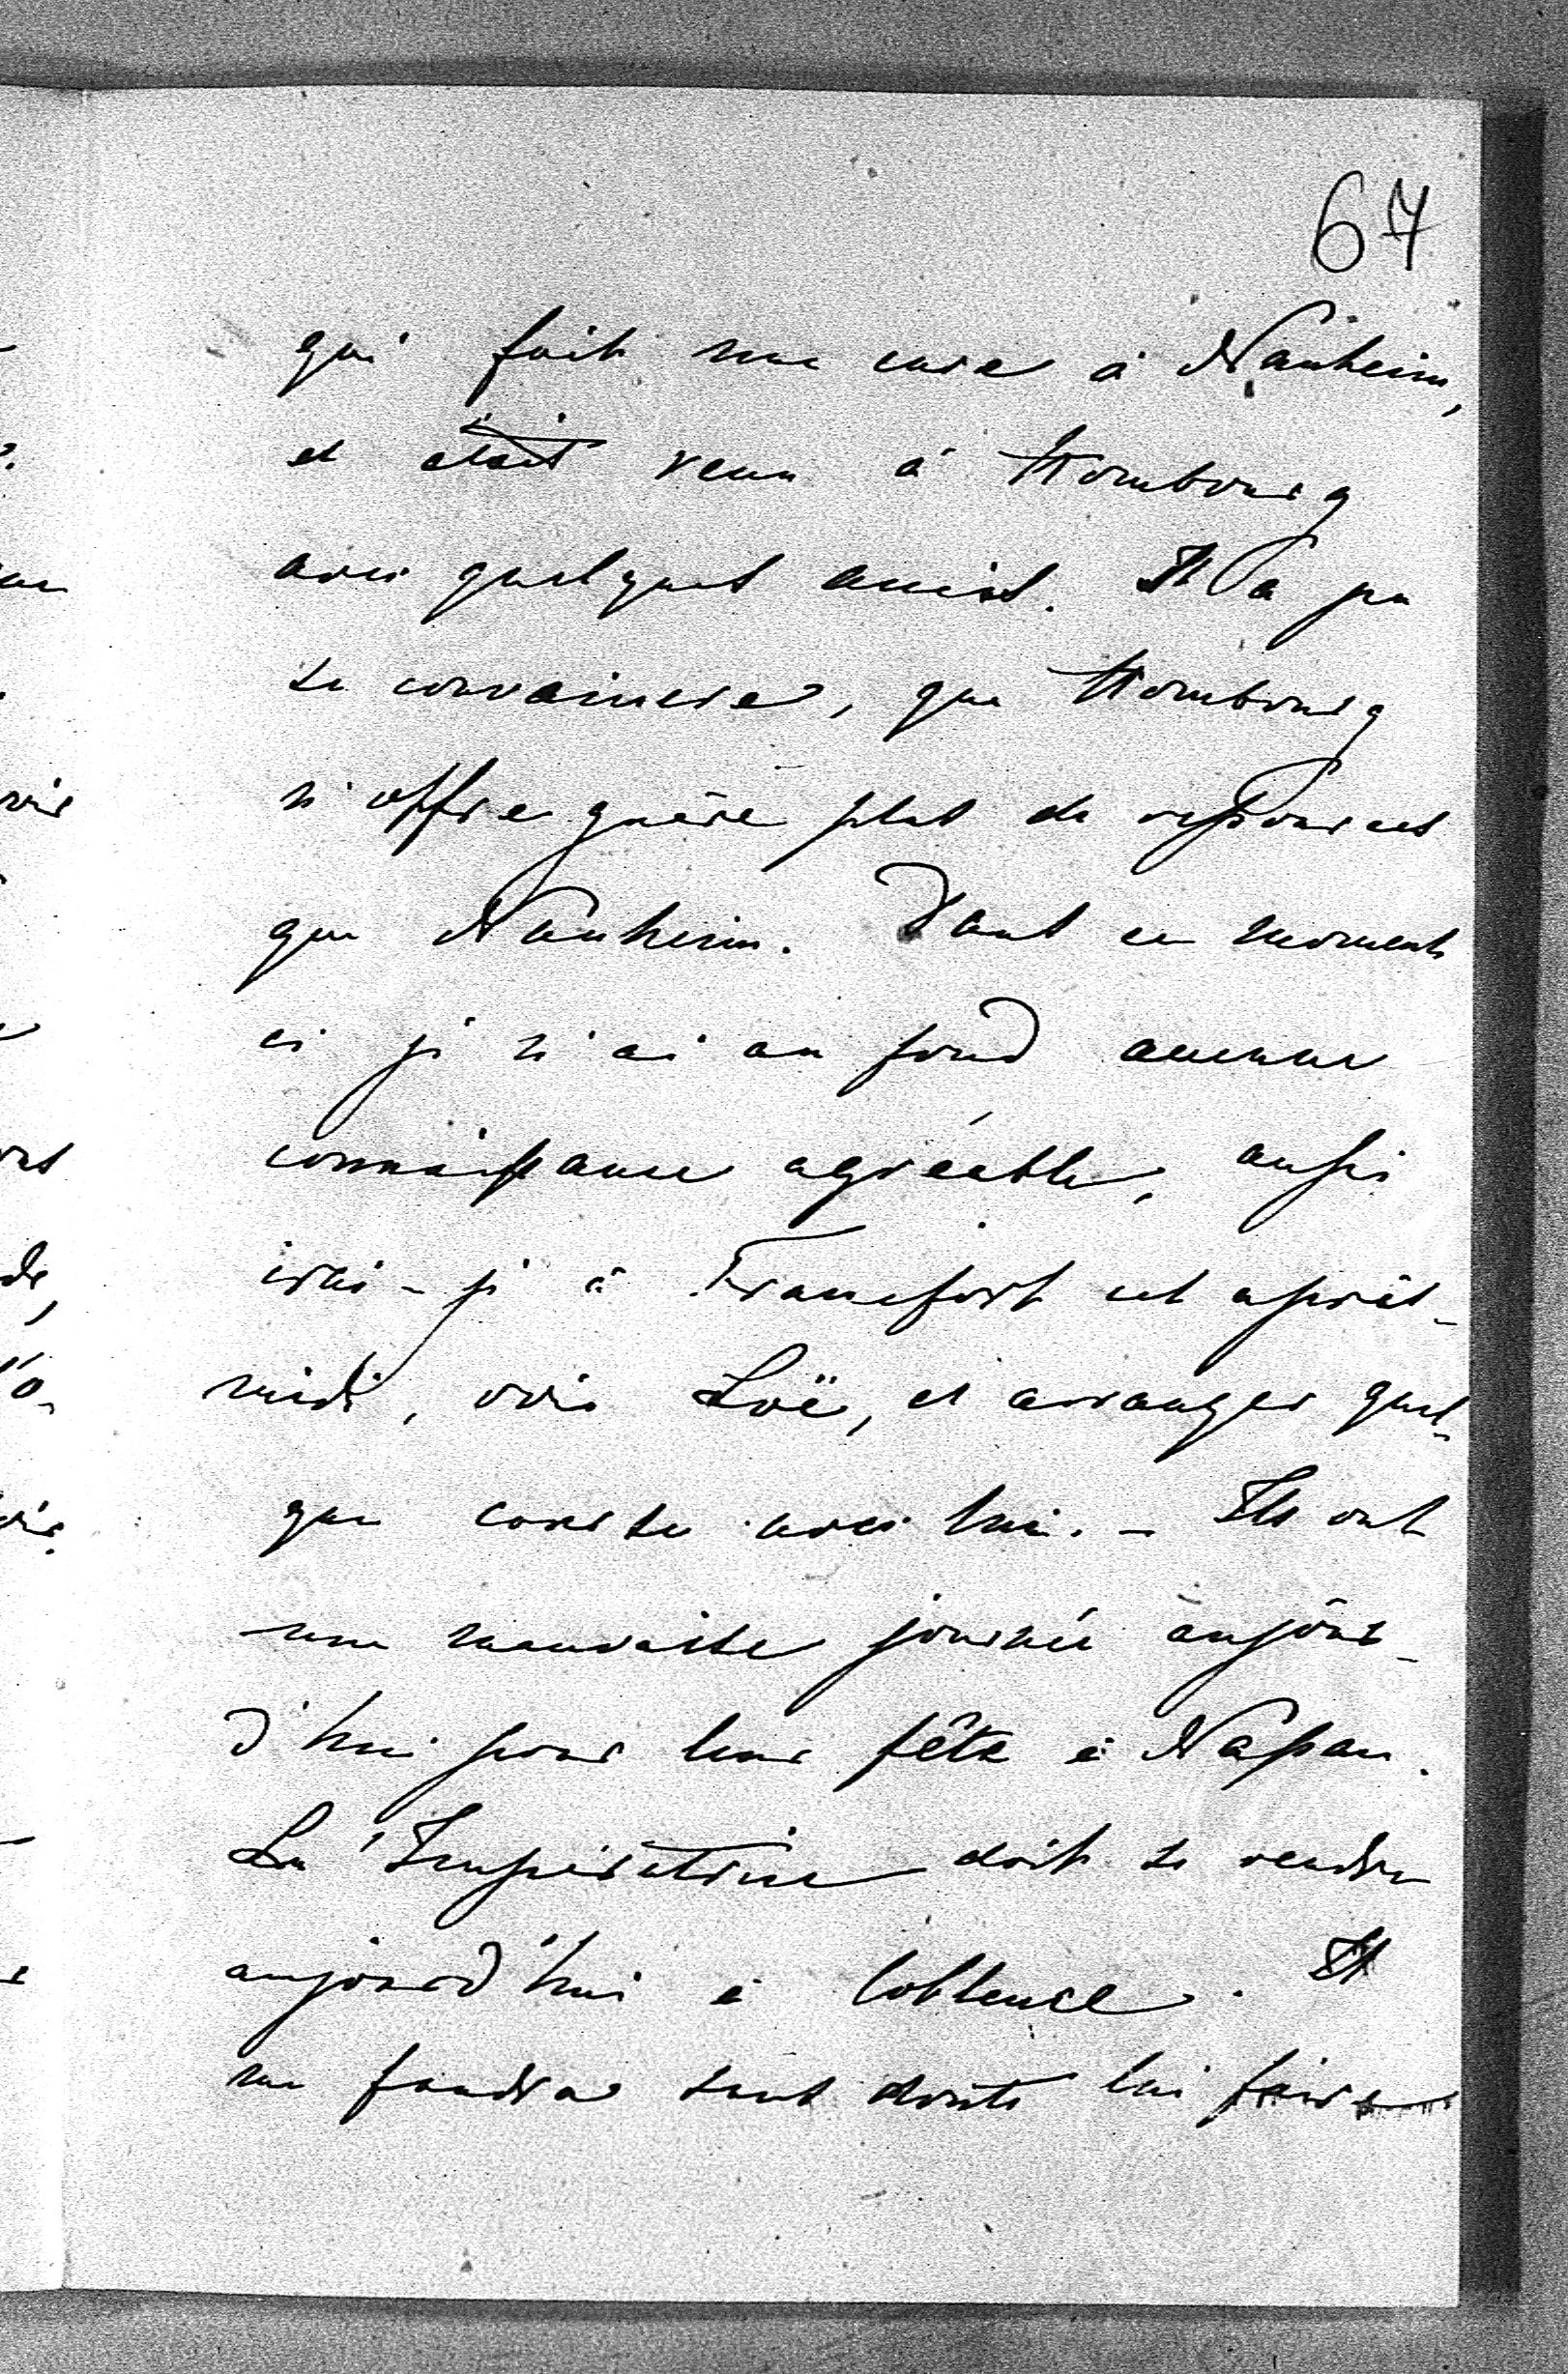 67
qui fait une cure à Nauheim,
et était venu à Hombourg
avec quelques amis. Il a pu
se convaincre, que Hombourg
n'offre guère plus de ressources
que Nauheim. Dans ce moment
ci je n'ai au fond aucune
connaissance agréable, aussi
irai-je à Francfort cet après-
midi, voir Loë, et arranger quel-
que course avec lui. - Ils ont
une mauvaise journée aujour-
d'hui pour leur fête à Nassau.
L'Impératrice doit se rendre
aujourd'hui à Coblence. Il
me faudra sans doute lui faire